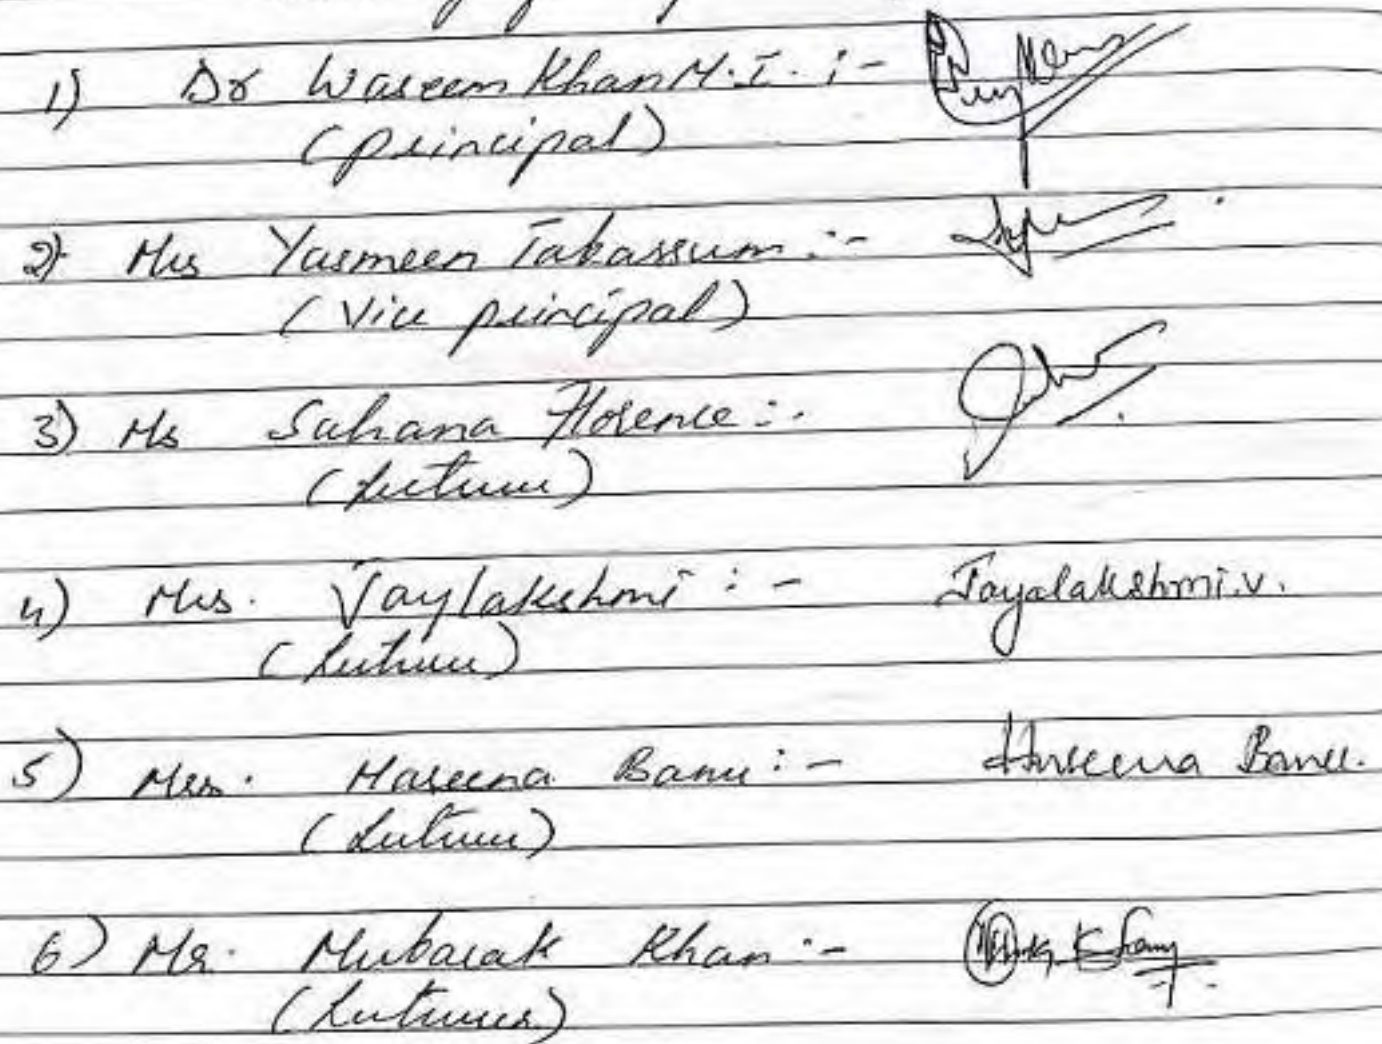 1) Dr Waseem Khan M.I. :-
(principal)
2) Mrs Yasmeen Tabassum :-
(Vice principal)
3) Ms Suhana Florence :-
(Lecturer)
4) Mrs. Jaylakshmi :- Jayalakshmi.V.
(Lecturer)
5) Mrs. Haseena Banu :- Haseena Banu.
(Lecturer)
6) Mr. Mubarak Khan :-
(Lecturer)